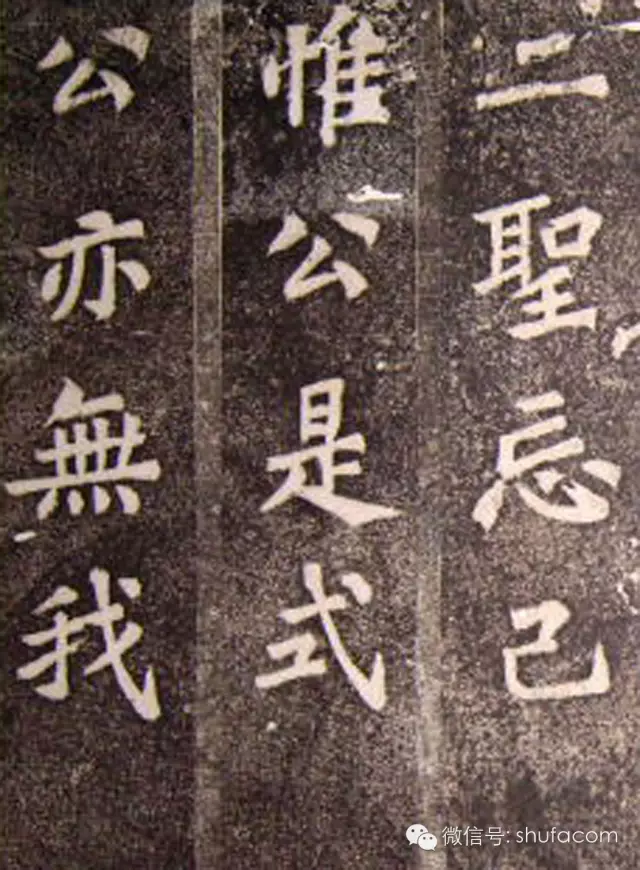 二聖忘己
惟公是式
公亦無我
微信号: shufacom